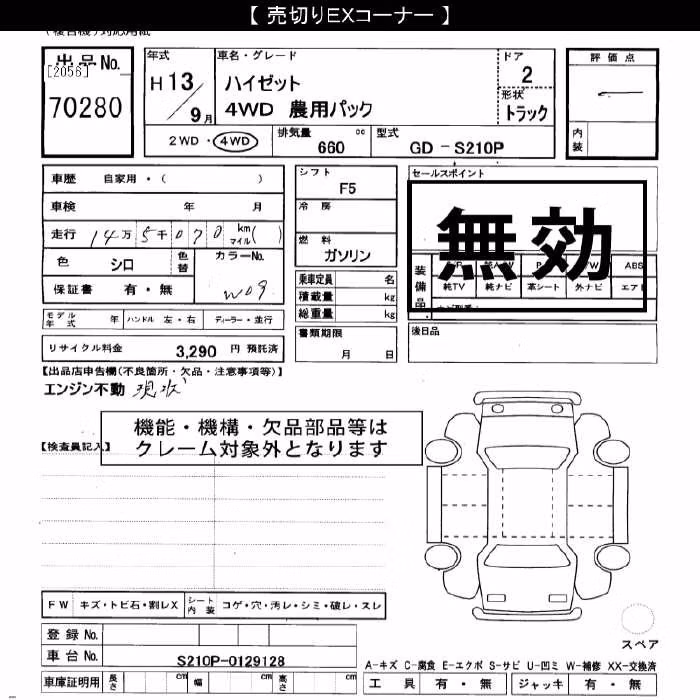 【 売切りEXコーナー 】
出品No.
[2056]
70280
年式
H 13/9月
車名・グレード
ハイゼット
4WD 農用パック
ドア
2
形状
トラック
評価点
内装
2WD・4WD
排気量 cc
660
型式
GD-S210P
車歴 自家用・( )
車検 年 月
走行 14万 5千 070 km マイル( )
色 シロ
色替
カラーNo.
W09
保証書 有・無
モデル年式 年
ハンドル 左・右
ディーラー・並行
リサイクル料金 3,290 円 預託済
シフト
F5
冷房
燃料
ガソリン
乗車定員 名
積載量 kg
総重量 kg
書類期限
月 日
セールスポイント
無効
装備品
ABS
純TV 純ナビ 革シート 外ナビ エアB
後日品
【出品店申告欄(不良箇所・欠品・注意事項等)】
エンジン不動 現状
機能・機構・欠品部品等は
クレーム対象外となります
【検査員記入】
FW キズ・トビ石・割レX
シート内装 コゲ・穴・汚レ・シミ・破レ・スレ
登録No.
車台No. S210P-0129128
車庫証明用 長さ cm 幅 cm 高さ cm
スペア
A-キズ C-腐食 E-エクボ S-サビ U-凹ミ W-補修 XX-交換済
工具 有・無 ジャッキ 有・無